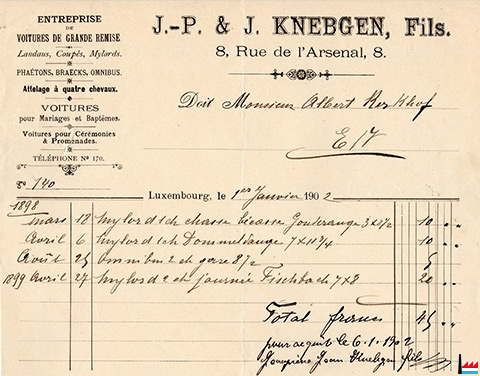 ENTREPRISE
DE
VOITURES DE GRANDE REMISE.
Landaus, Coupés, Mylords.
PHAÉTONS, BRAECKS, OMNIBUS.
Attelage à quatre chevaux.
VOITURES
pour Mariages et Baptêmes.
Voitures pour Cérémonies
& Promenades.
TÉLÉPHONE No 170.
J.-P. & J. KNEBGEN, Fils.
8, Rue de l'Arsenal, 8.
Doit Monsieur Albert Kerkhof
E/V
No 140
Luxembourg, le 1er Janvier 1902
1898
mars 18 Mylord 1 ch chasse bécasse 10 ..
Avril 6 Mylord 1 ch Dommeldange 10 ..
Août 25 omnibus 2 ch gare 5
1899 Avril 27 Mylord 2 ch journée Fischbach 7 x 8 20 ..
Total francs 45 ..
pour acquit le 6.1.1902
Jean Knebgen fils